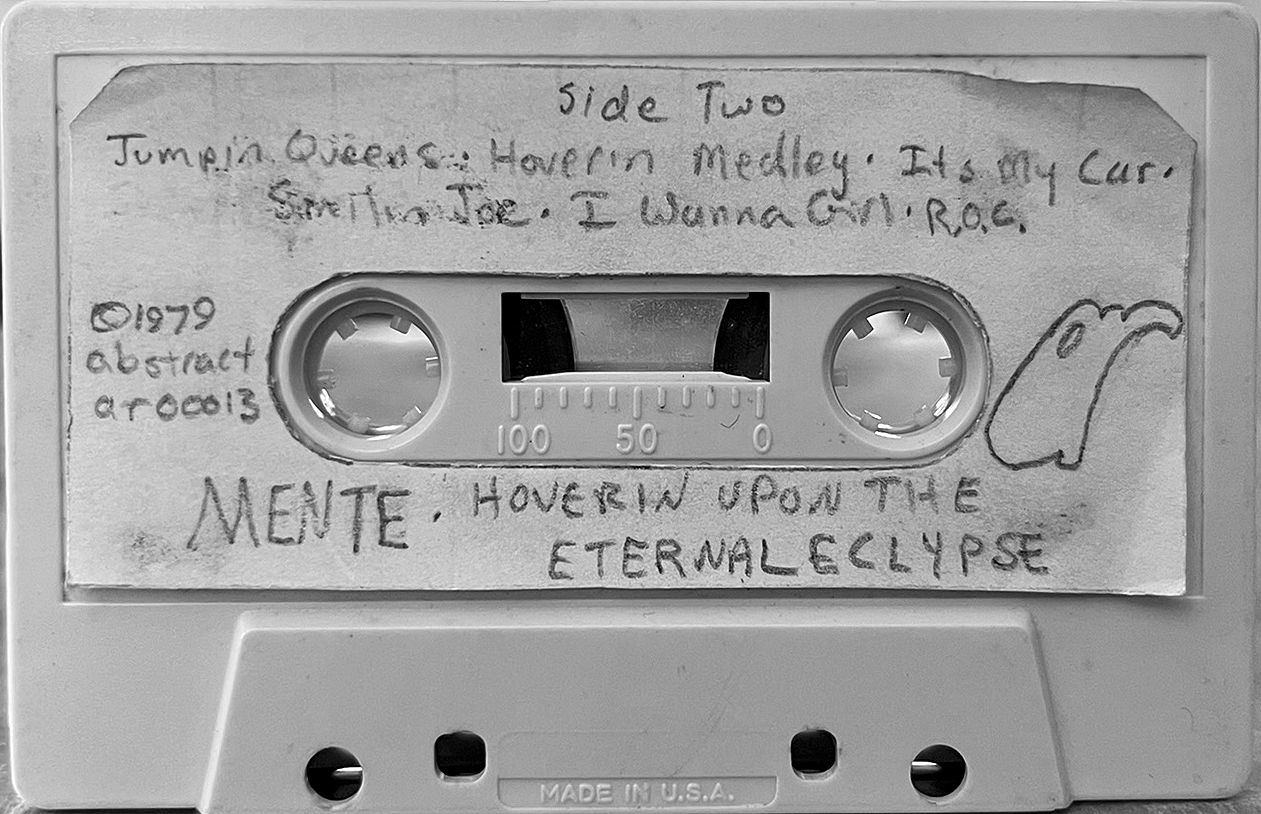 Side Two
Jumpin Queens · Hoverin Medley · Its My Car ·
Joe · I Wanna Girl · R.O.C.
©1979
abstract
ar00013
100 50 0
MENTE · HOVERIN UPON THE
ETERNAL ECLYPSE
MADE IN U.S.A.